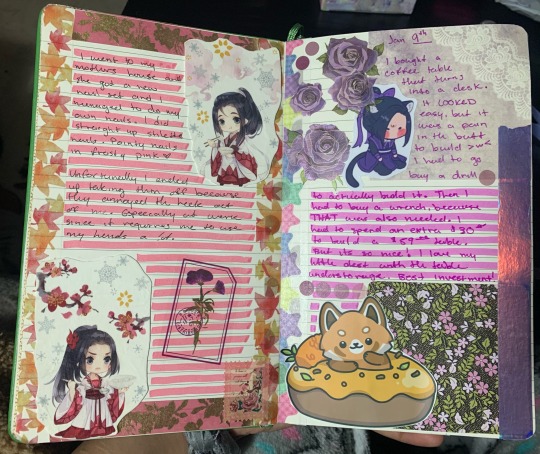 I went to my
mothers house and
she got a new
nail set and I
managed to do my
own nails. I did
straight up stiletto
nails. Pointy nails
in frosty pink
Unfortunately I ended
up taking them off because
they annoyed the heck out
of me. Especially at work
since it requires me to use
my hands a lot.
Jan 9th
I bought a
coffee table
that turns
into a desk.
It LOOKED
easy, but it
was a pain
in the butt
to build >w<
I had to go
buy a drill
to actually build it. Then I
had to buy a wrench, because
THAT was also needed. I
had to spend an extra $30
to build a $59 table.
But its so nice! I love my
little desk with the table
understorage. Best investment!